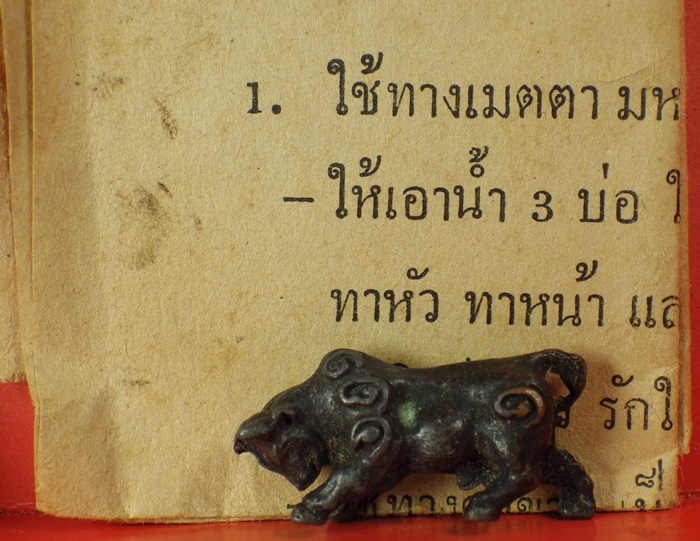 1. ใช้ทางเมตตา มห
– ให้เอาน้ำ 3 บ่อ ใ
ทาหัว ทาหน้า แล
รักใ